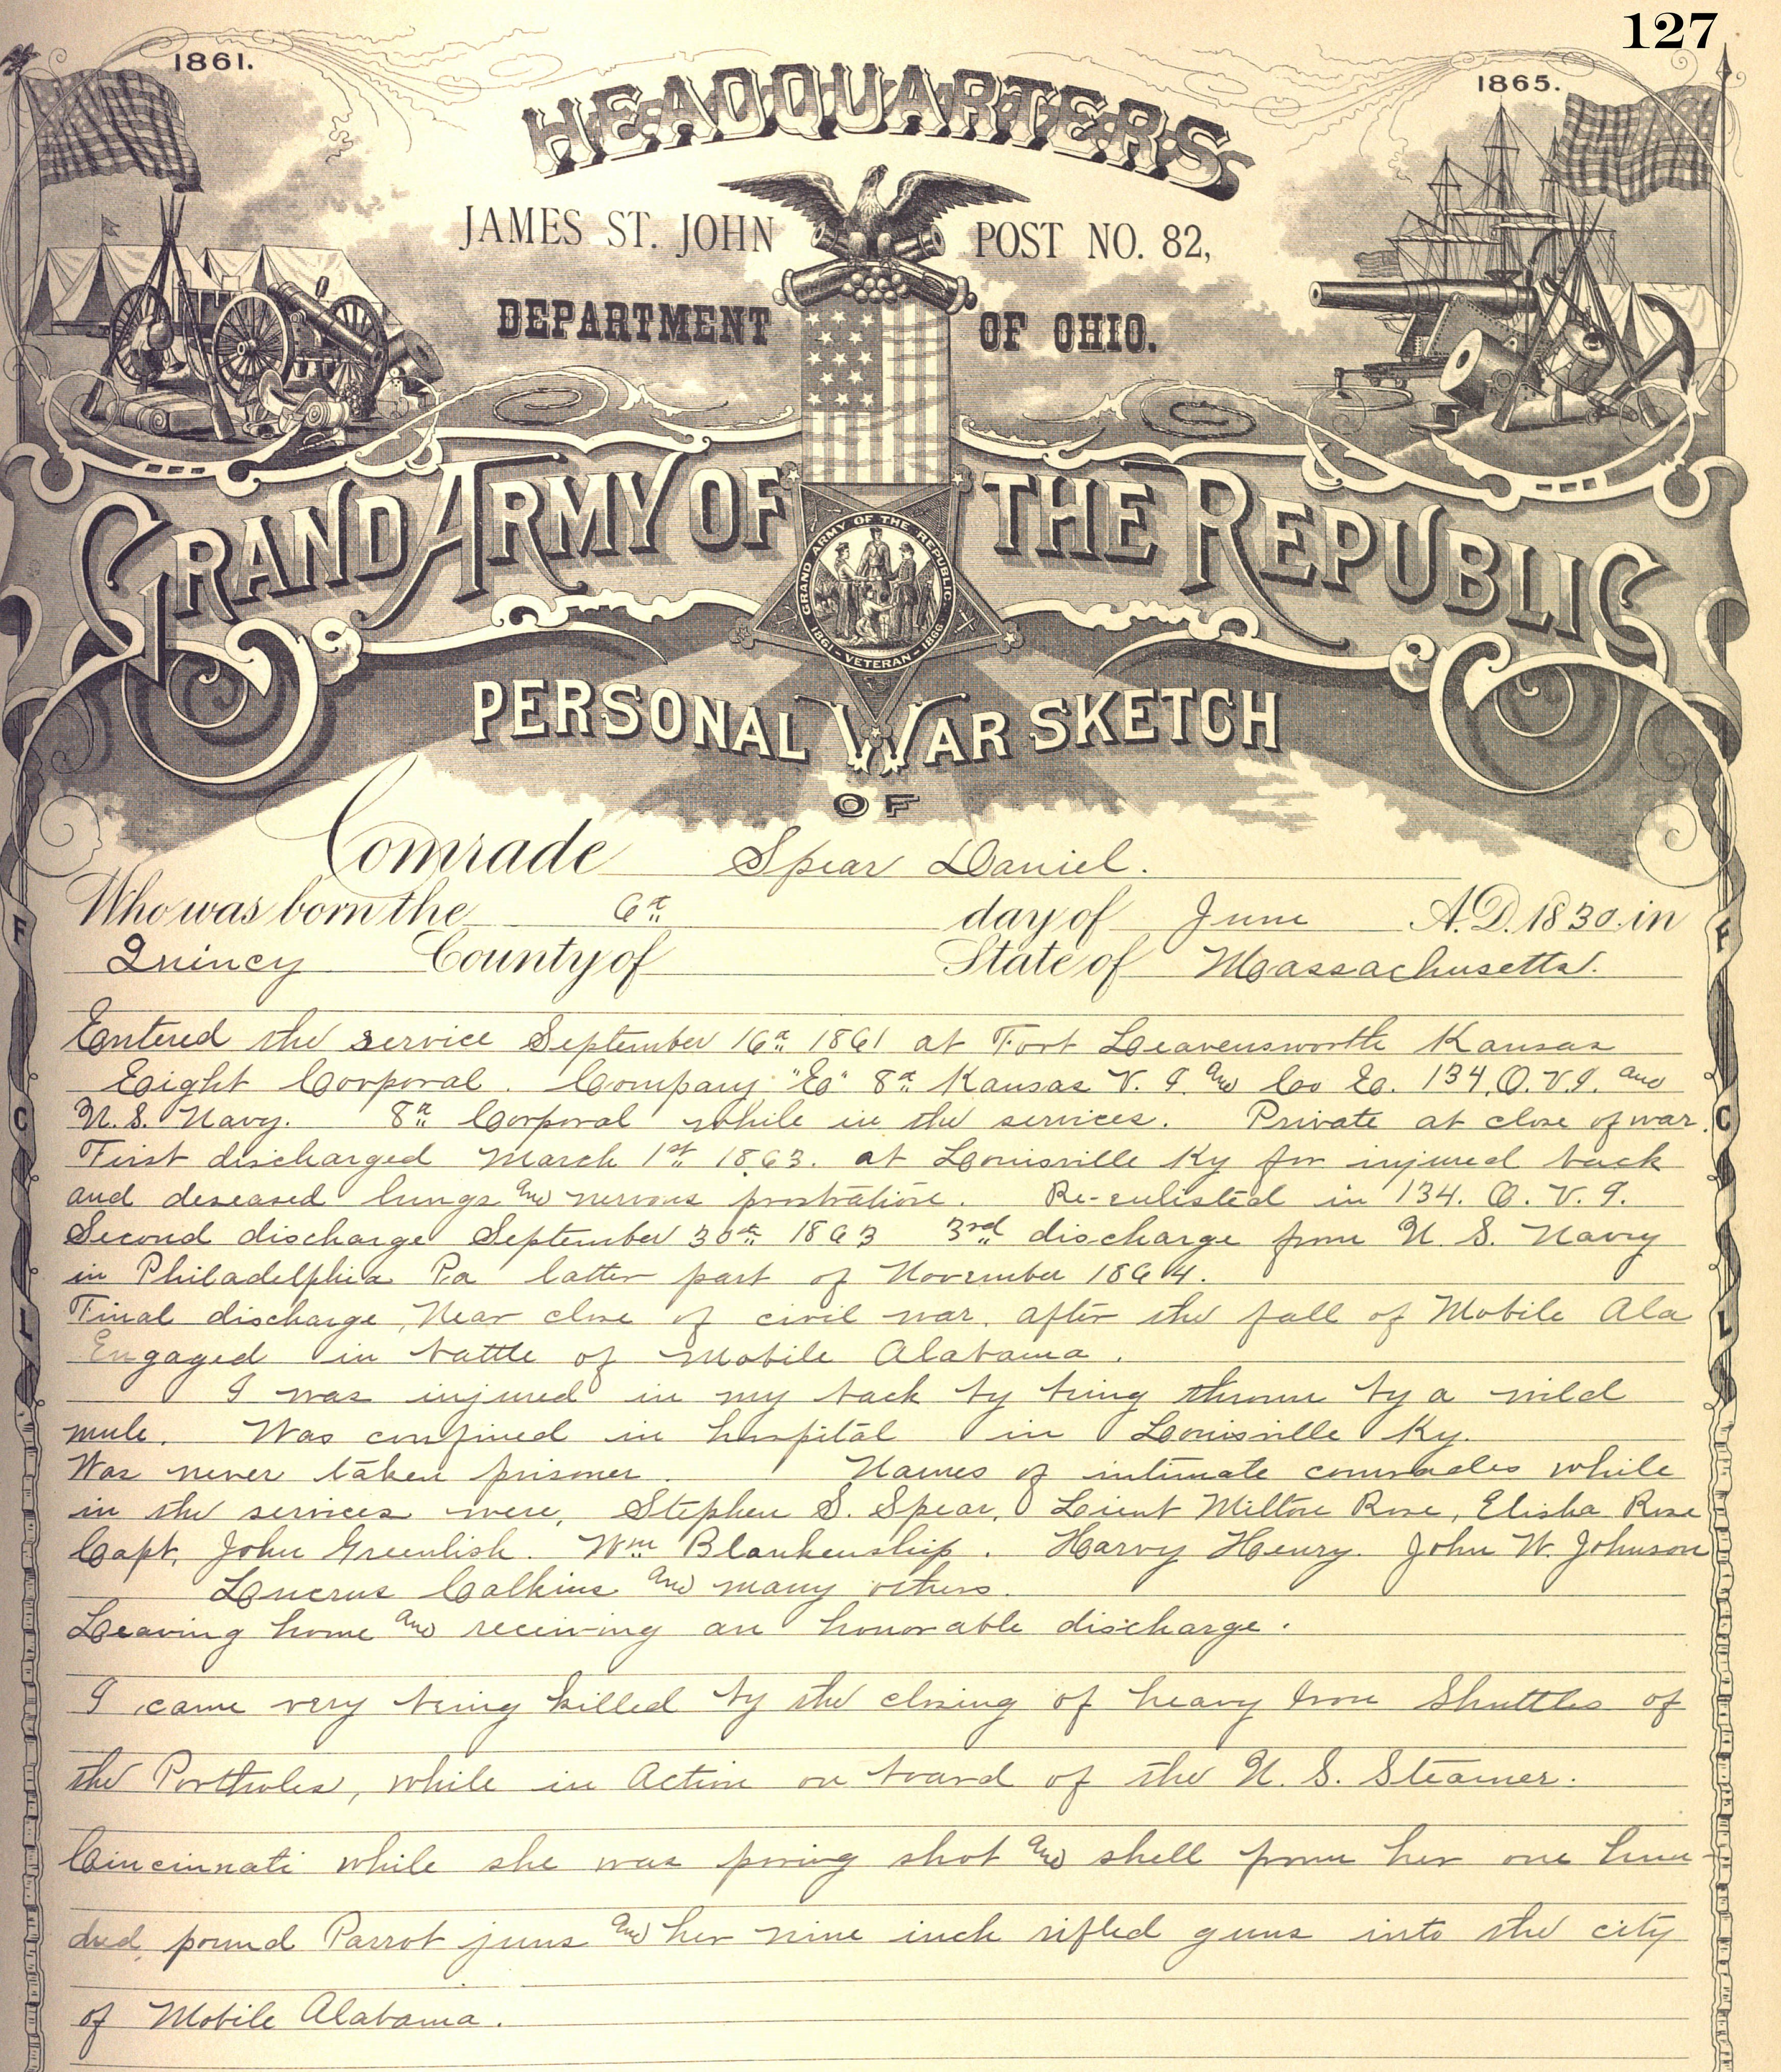 127
1861.
1865.
HEADQUARTERS
JAMES ST. JOHN POST NO. 82,
DEPARTMENT OF OHIO.
GRAND ARMY OF THE REPUBLIC
GRAND ARMY OF THE REPUBLIC
1861 - VETERAN - 1866
PERSONAL WAR SKETCH
OF
Comrade Spear Daniel.
Who was born the 6th day of June A.D. 1830 in
Quincy County of State of Massachusetts.
Entered the service September 16th 1861 at Fort Leavensworth Kansas
Eight Corporal. Company "E" 8th Kansas V. I. and Co E. 134, O.V.I. and
U.S. Navy. 8th Corporal while in the services. Private at close of war.
First discharged March 1st 1863. at Louisville Ky for injured back
and deseased lungs and nervous prostration. Re-enlisted in 134. O. V. I.
Second discharge September 30th 1863 3rd discharge from U. S. Navy
in Philadelphia Pa latter part of November 1864.
Final discharge, Near close of civil war. after the fall of Mobile Ala
Engaged in battle of Mobile Alabama.
I was injured in my back by being thrown by a wild
mule. Was confined in hospital in Louisville Ky.
Was never taken prisoner. Names of intimate comrades while
in the services were, Stephen S. Spear, Lieut Milton Rose, Elisha Rose
Capt. John Greenlish. Wm Blankenship. Harvy Henry. John W. Johnson
Calkins and many others.
Leaving home and receiving an honorable discharge.
I came very being killed by the closing of heavy Iron Shuttles of
the Portholes, while in Action on board of the U. S. Steamer.
Cincinnati while she was poring shot and shell from her one hun-
dred pound Parrot juns and her nine inch rifled guns into the city
of Mobile Alabama.
F
C
L
F
C
L